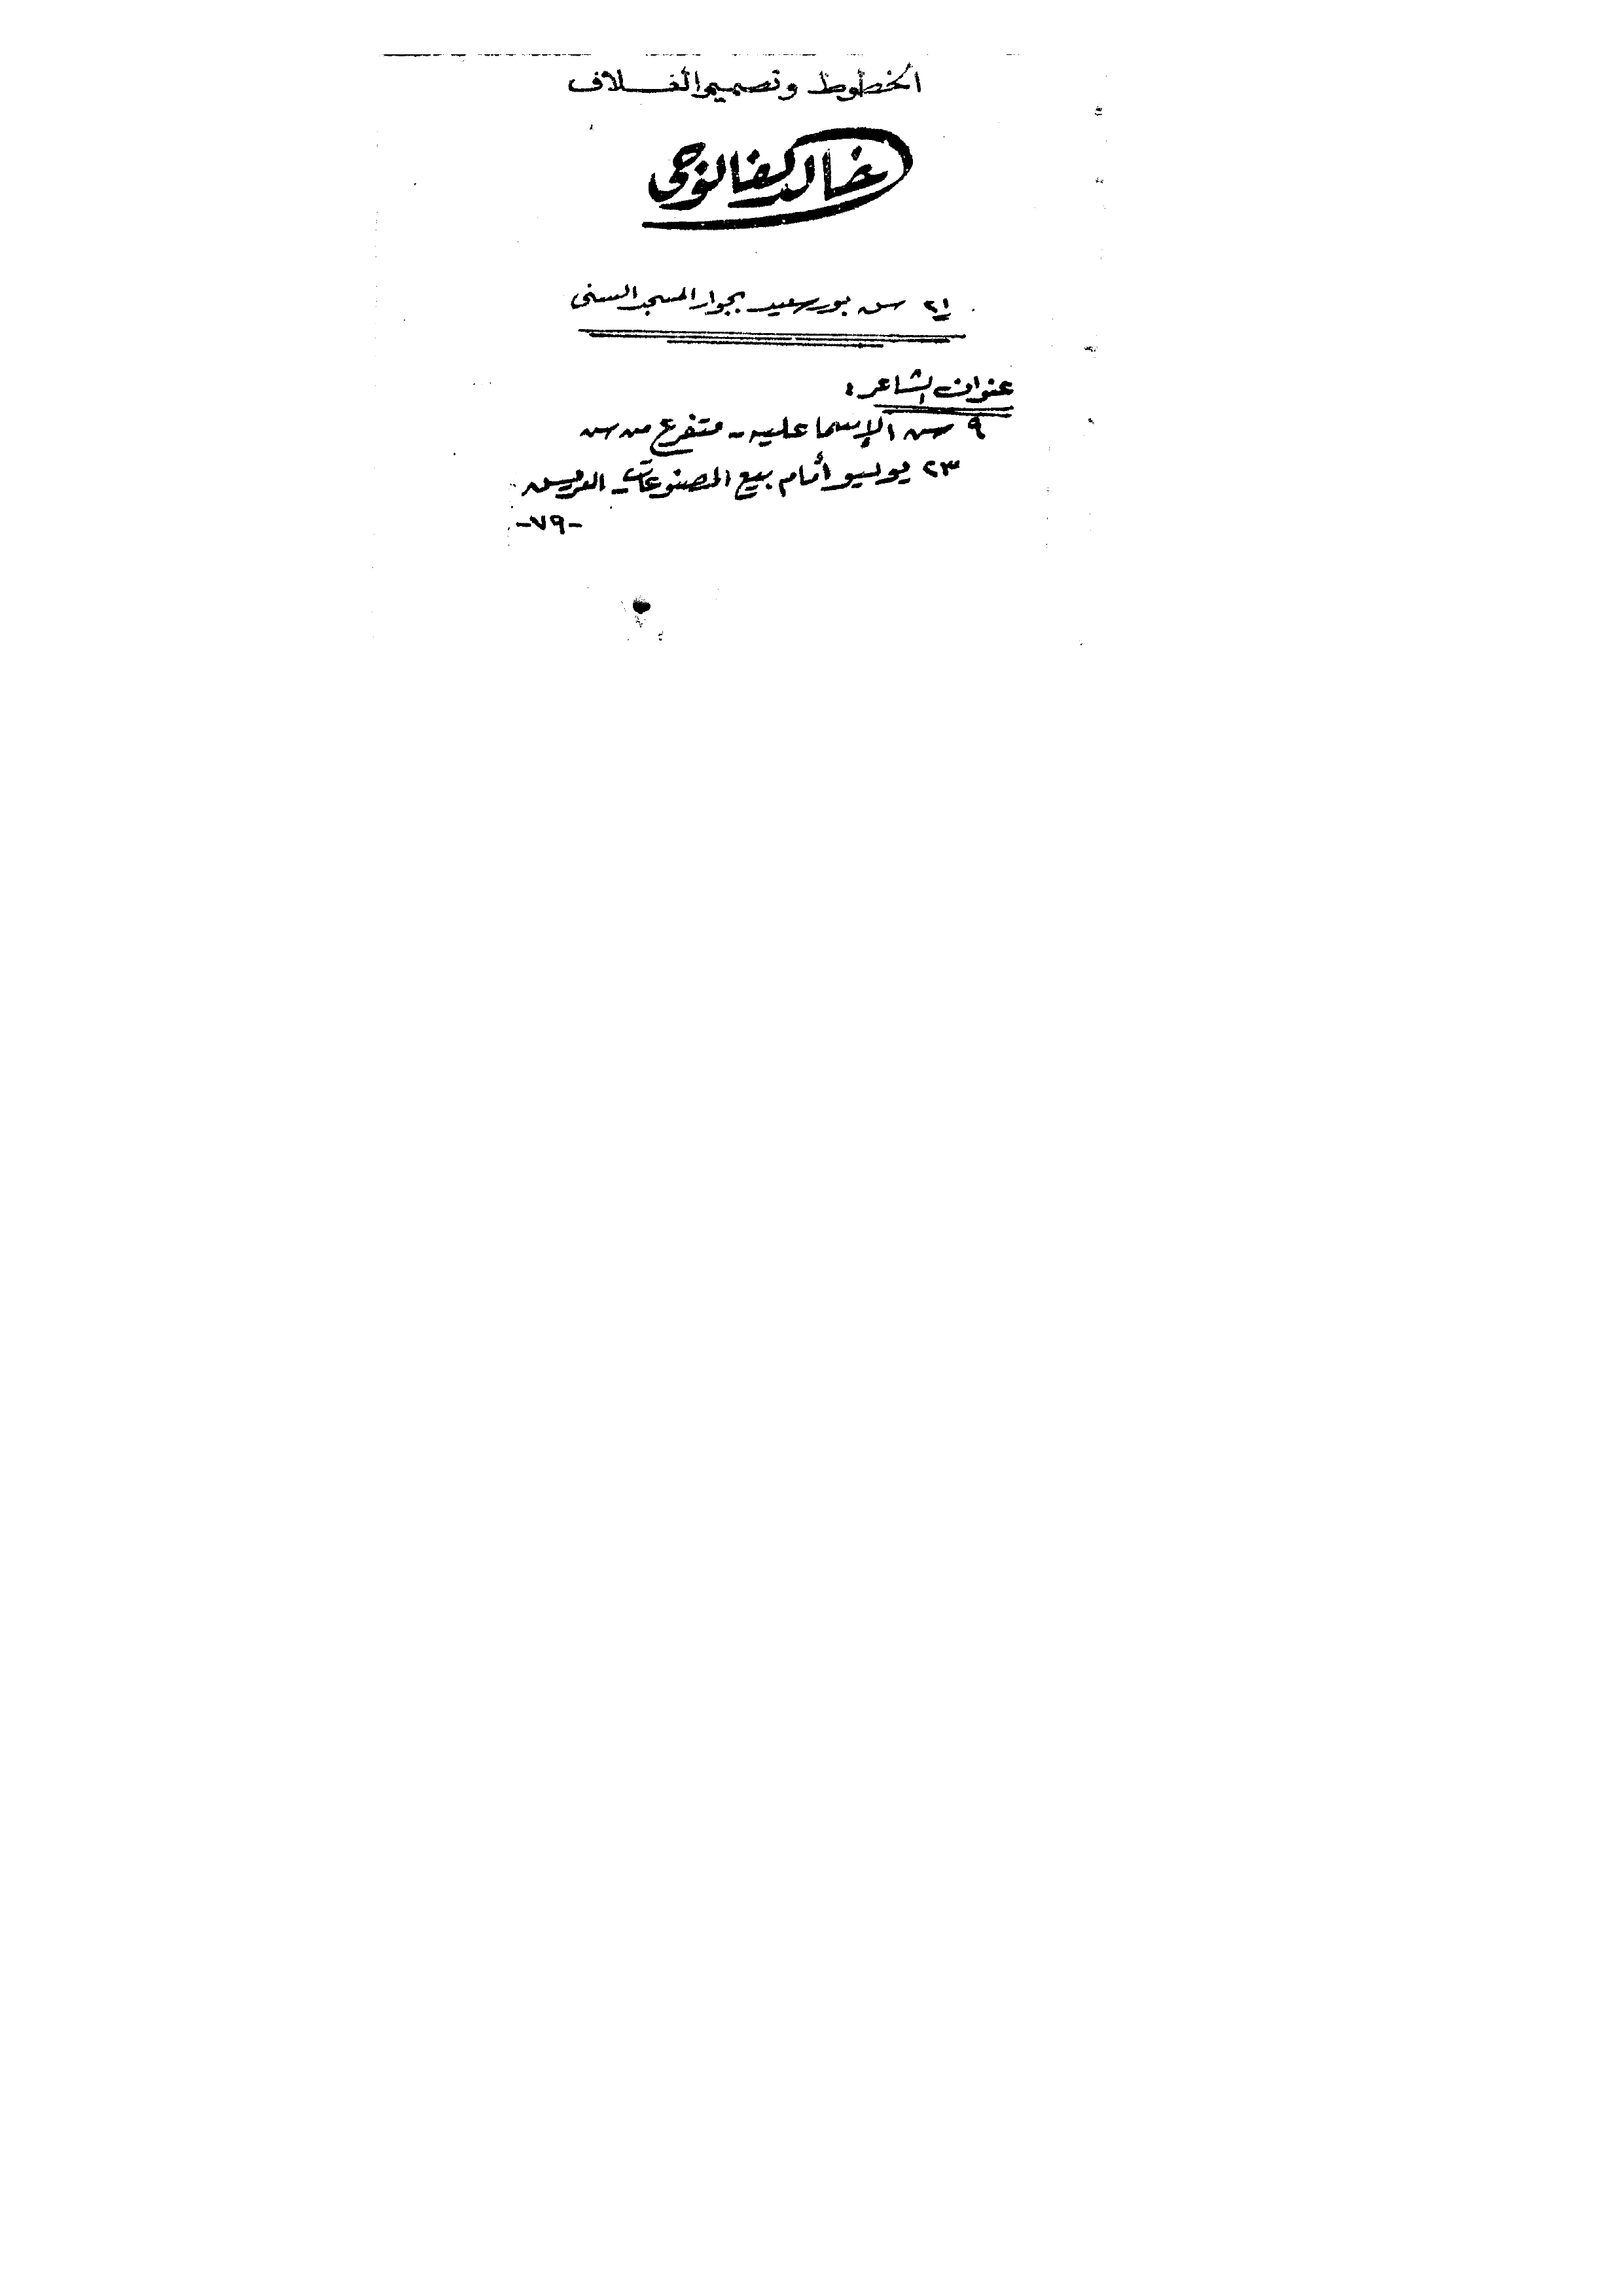 الخطوط وتصميم الغلاف
خالد كفالوجى
٢١ ش بورسعيد بجوار المسجد السنى
عنوان الشاعر :
٩ ش الإسماعليه - متفرع من ش
٢٣ يوليو أمام بيع المصنوعات - العريش
-٧٩-